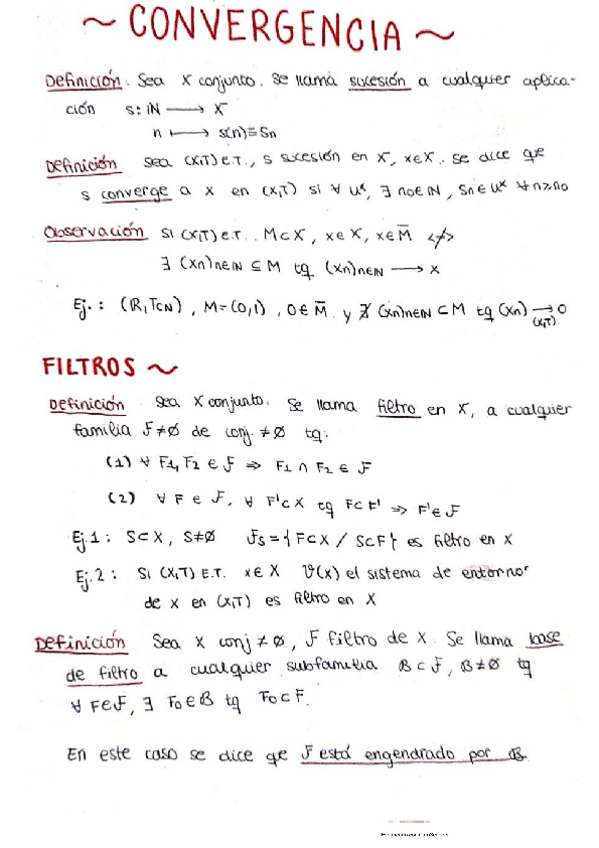 ~ CONVERGENCIA ~
Definición. Sea X conjunto. Se llama sucesión a cualquier aplica-
ción s: ℕ ⟶ X
n ⟼ s(n) ≡ Sn
Definición Sea (X,T) E.T., s sucesión en X, x∈X. Se dice que
s converge a x en (X,T) si ∀ Uˣ, ∃ n0∈ℕ, Sn∈Uˣ ∀n≥n0
Observación Si (X,T) e.T.. M⊂X, x∈X, x∈M̄ <≠>
∃ (xn)n∈ℕ ⊆ M tq (xn)n∈ℕ ⟶ x
Ej.: (ℝ,TCN), M=(0,1), 0∈M̄ y ∄ (xn)n∈ℕ ⊂ M tq (xn) ⟶ 0
(X,T)
FILTROS ~
Definición Sea X conjunto. Se llama filtro en X, a cualquier
familia F≠∅ de conj. ≠∅ tq:
(1) ∀ F1, F2 ∈ F ⇒ F1 ∩ F2 ∈ F
(2) ∀ F ∈ F, ∀ F'⊂X tq F⊂F' ⇒ F'∈F
Ej.1: S⊂X, S≠∅ Fs = {F⊂X / S⊂F} es filtro en X
Ej.2: Si (X,T) E.T. x∈X V(x) el sistema de entornor
de x en (X,T) es filtro en X
Definición Sea X conj ≠ ∅, F filtro de X. Se llama base
de filtro a cualquier subfamilia B⊂F, B≠∅ tq
∀ F∈F, ∃ F0∈B tq F0⊂F.
En este caso se dice que F está engendrado por B